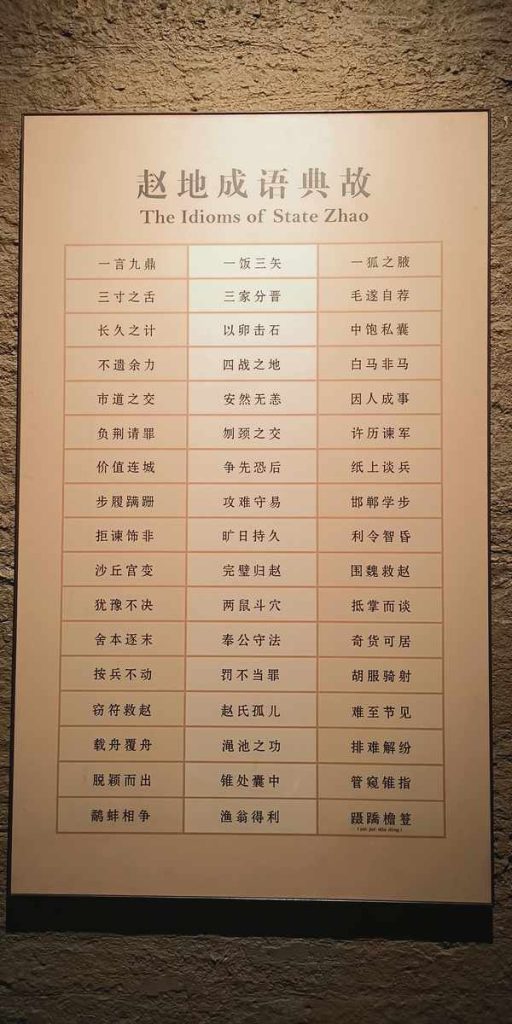 赵地成语典故
The Idioms of State Zhao
一言九鼎 一饭三矢 一狐之腋
三寸之舌 三家分晋 毛遂自荐
长久之计 以卵击石 中饱私囊
不遗余力 四战之地 白马非马
市道之交 安然无恙 因人成事
负荆请罪 刎颈之交 许历谏军
价值连城 争先恐后 纸上谈兵
步履蹒跚 攻难守易 邯郸学步
拒谏饰非 旷日持久 利令智昏
沙丘宫变 完璧归赵 围魏救赵
犹豫不决 两鼠斗穴 抵掌而谈
舍本逐末 奉公守法 奇货可居
按兵不动 罚不当罪 胡服骑射
窃符救赵 赵氏孤儿 难至节见
载舟覆舟 渑池之功 排难解纷
脱颖而出 锥处囊中 管窥锥指
鹬蚌相争 渔翁得利 蹑蹻檐簦